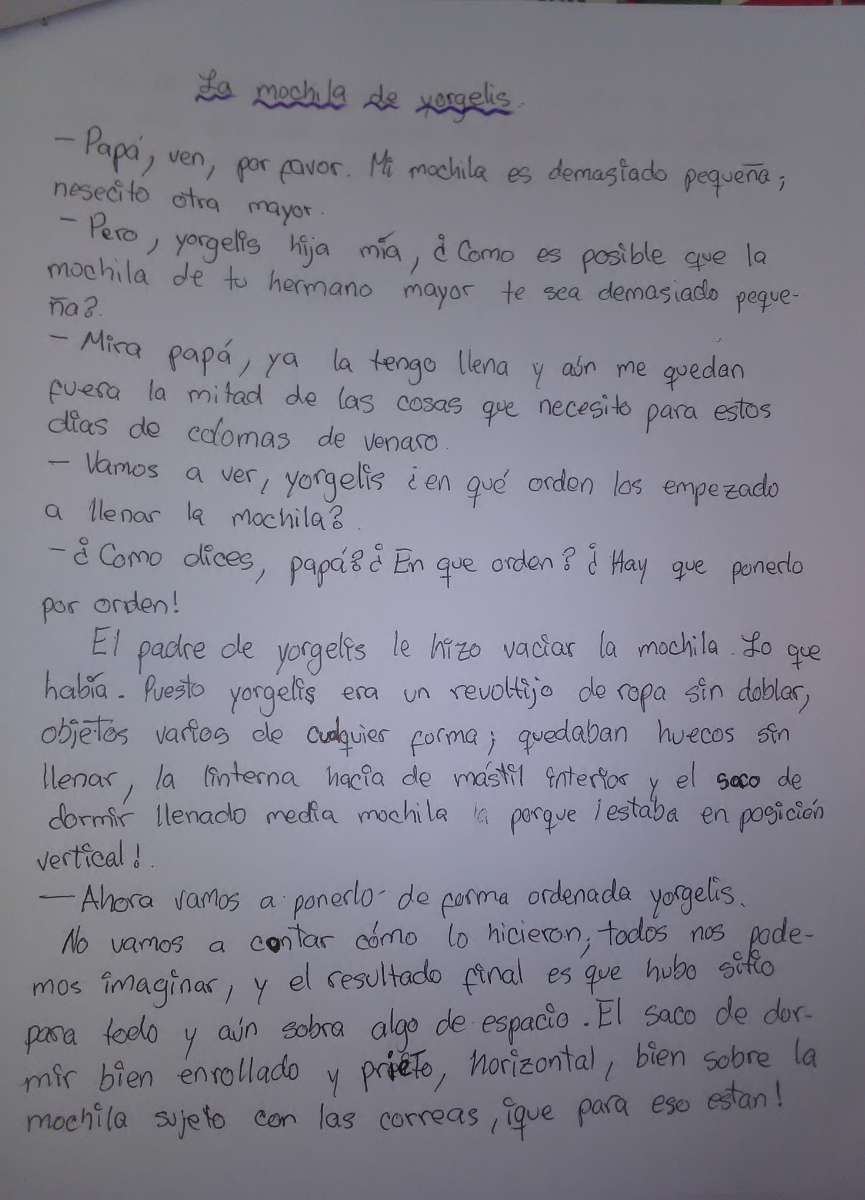 La mochila de yorgelis.
- Papá, ven, por favor. Mi mochila es demasiado pequeña;
nesecito otra mayor.
- Pero, yorgelis hija mía, ¿Como es posible que la
mochila de tu hermano mayor te sea demasiado peque-
ña?.
- Mira papá, ya la tengo llena y aún me quedan
fuera la mitad de las cosas que necesito para estos
días de colomas de venaro.
- Vamos a ver, yorgelis ¿en qué orden los empezado
a llenar la mochila?.
- ¿Como dices, papá? ¿En que orden? ¿Hay que ponerlo
por orden!
El padre de yorgelis le hizo vaciar la mochila. Lo que
había. Puesto yorgelis era un revoltijo de ropa sin doblar,
objetos varios de cualquier forma; quedaban huecos sin
llenar, la linterna hacia de mástil interior y el saco de
dormir llenado media mochila porque ¡estaba en posición
vertical!.
- Ahora vamos a ponerlo de forma ordenada yorgelis.
No vamos a contar cómo lo hicieron; todos nos pode-
mos imaginar, y el resultado final es que hubo sitio
para todo y aún sobra algo de espacio. El saco de dor-
mir bien enrollado y prieto, horizontal, bien sobre la
mochila sujeto con las correas, ¡que para eso estan!